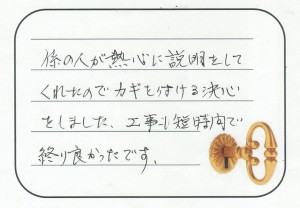 係の人が熱心に説明をして
くれたのでカギを付ける決心
をしました、工事も短時間で
終り良かったです。